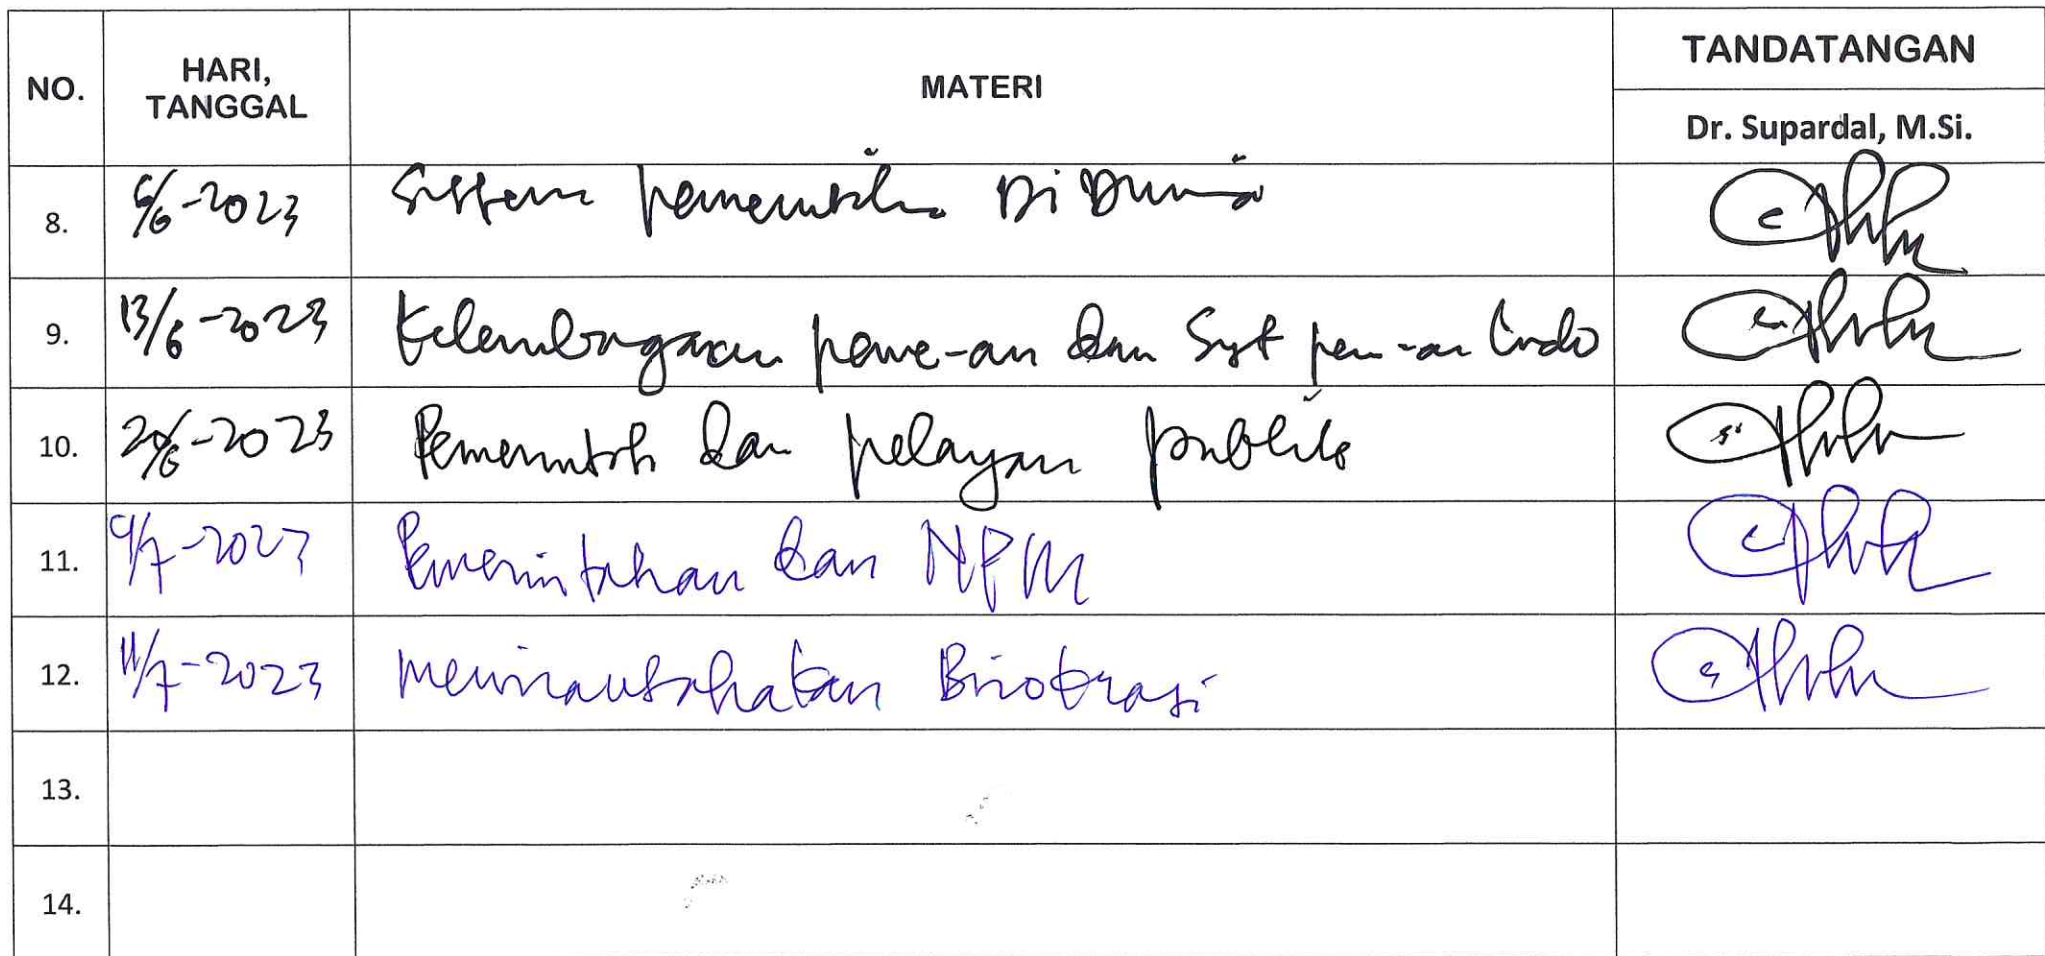 NO. HARI, TANGGAL MATERI TANDATANGAN
Dr. Supardal, M.Si.
8. 6/6-2023 Sistem pemerintahan Di Dunia
9. 13/6-2023 Kelembagaan peme-an dan Syst pem-an Indo
10. 20/6-2023 Pemerintah dan pelayan publik
11. 4/7-2023 Pemerintahan dan NPM
12. 11/7-2023 Mewirausahakan Birokrasi
13.
14.